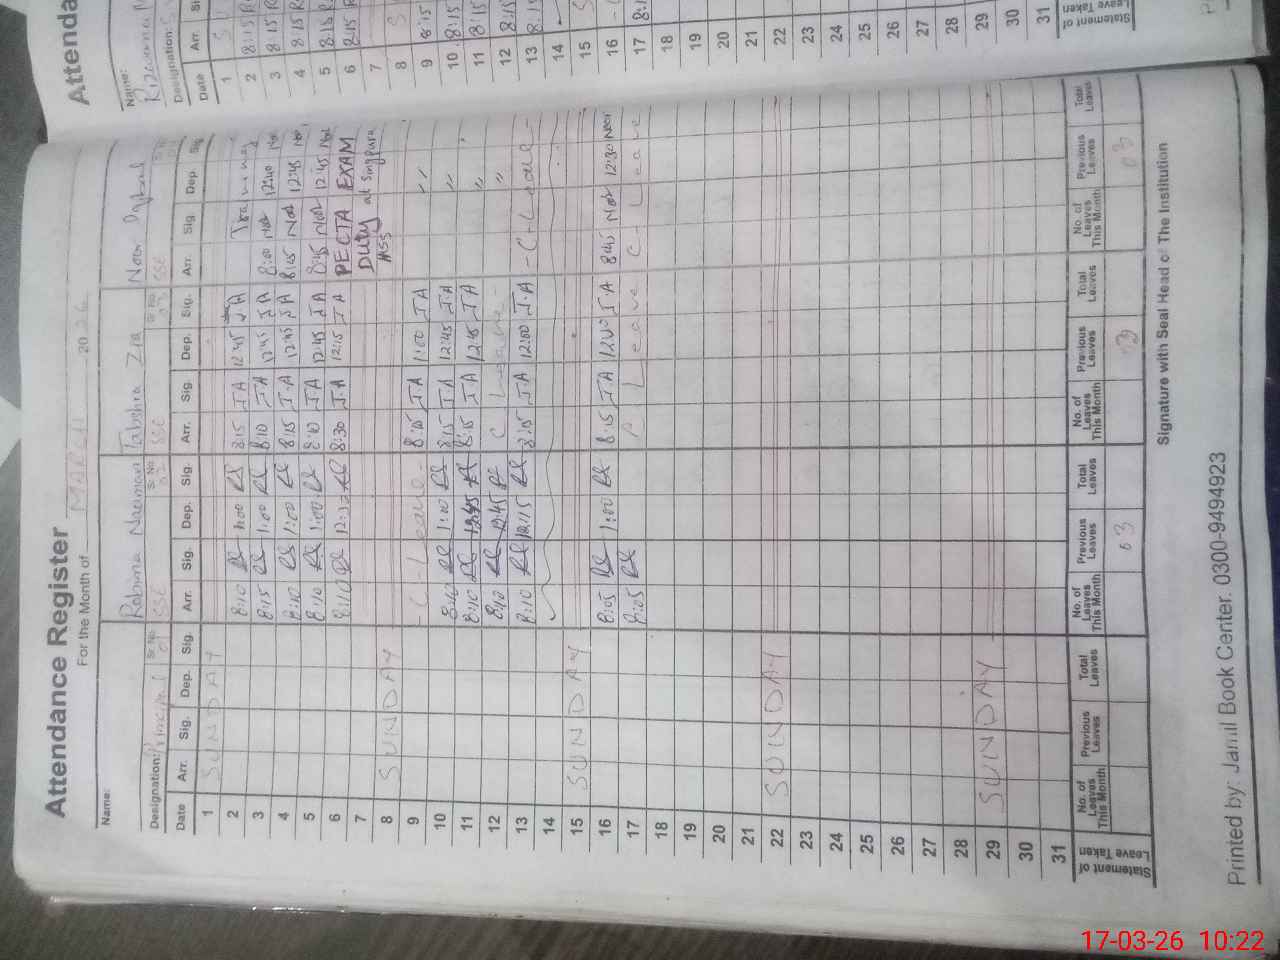 Attendance Register
For the Month of MARCH 2026
Name: Robina Nadman Tabshra Zia Noor
Designation: Principal Sr. No. 01 SSE Sr. No. 02 SSE Sr. No. 03 SSE
Date Arr. Sig. Dep. Sig. Arr. Sig. Dep. Sig. Arr. Sig. Dep. Sig. Arr. Sig. Dep. Sig.
1 SUNDAY
2 8:10 1:00 8:15 JA 12:45 JA
3 8:15 1:00 8:10 J.A 12:45 JA 8:00 12:40
4 8:10 1:00 8:15 J.A 12:45 JA 8:05 12:45
5 8:10 1:00 8:10 JA 12:45 JA 8:45 12:45
6 8:10 12:30 8:30 J.A 12:15 JA PECTA EXAM
7 Duty at Singpura
8 SUNDAY HSS
9 C-Leave 8:05 JA 1:00 JA 〃
10 8:10 1:10 8:15 JA 12:45 J.A 〃
11 8:10 12:45 8:15 JA 12:45 JA 〃
12 8:10 12:45 C Leave 〃
13 8:10 12:15 8:15 J.A 12:00 J.A -C-Leave-
14
15 SUNDAY
16 8:05 1:00 8:15 JA 12:00 J.A 8:45 12:30
17 8:05 C Leave C- Leave
18
19
20
21
22 SUNDAY
23
24
25
26
27
28
29 SUNDAY
30
31
Statement of Leave Taken No. of Leaves This Month Previous Leaves Total Leaves No. of Leaves This Month Previous Leaves Total Leaves No. of Leaves This Month Previous Leaves Total Leaves No. of Leaves This Month Previous Leaves Total Leaves
03 03 03
Signature with Seal Head of The Institution
Printed by: Jamil Book Center. 0300-9494923
Attenda
Name:
Designation: S
Date Arr.
1 S
2 8:15
3 8:15
4 8:15
5 8:10
6 8:15
7
8 S
9 8:15
10 8:15
11 8:15
12 8:15
13 8:15
14
15 S
16
17 8:1
18
19
20
21
22
23
24
25
26
27
28
29
30
31
Statement of Leave Taken
17-03-26 10:22